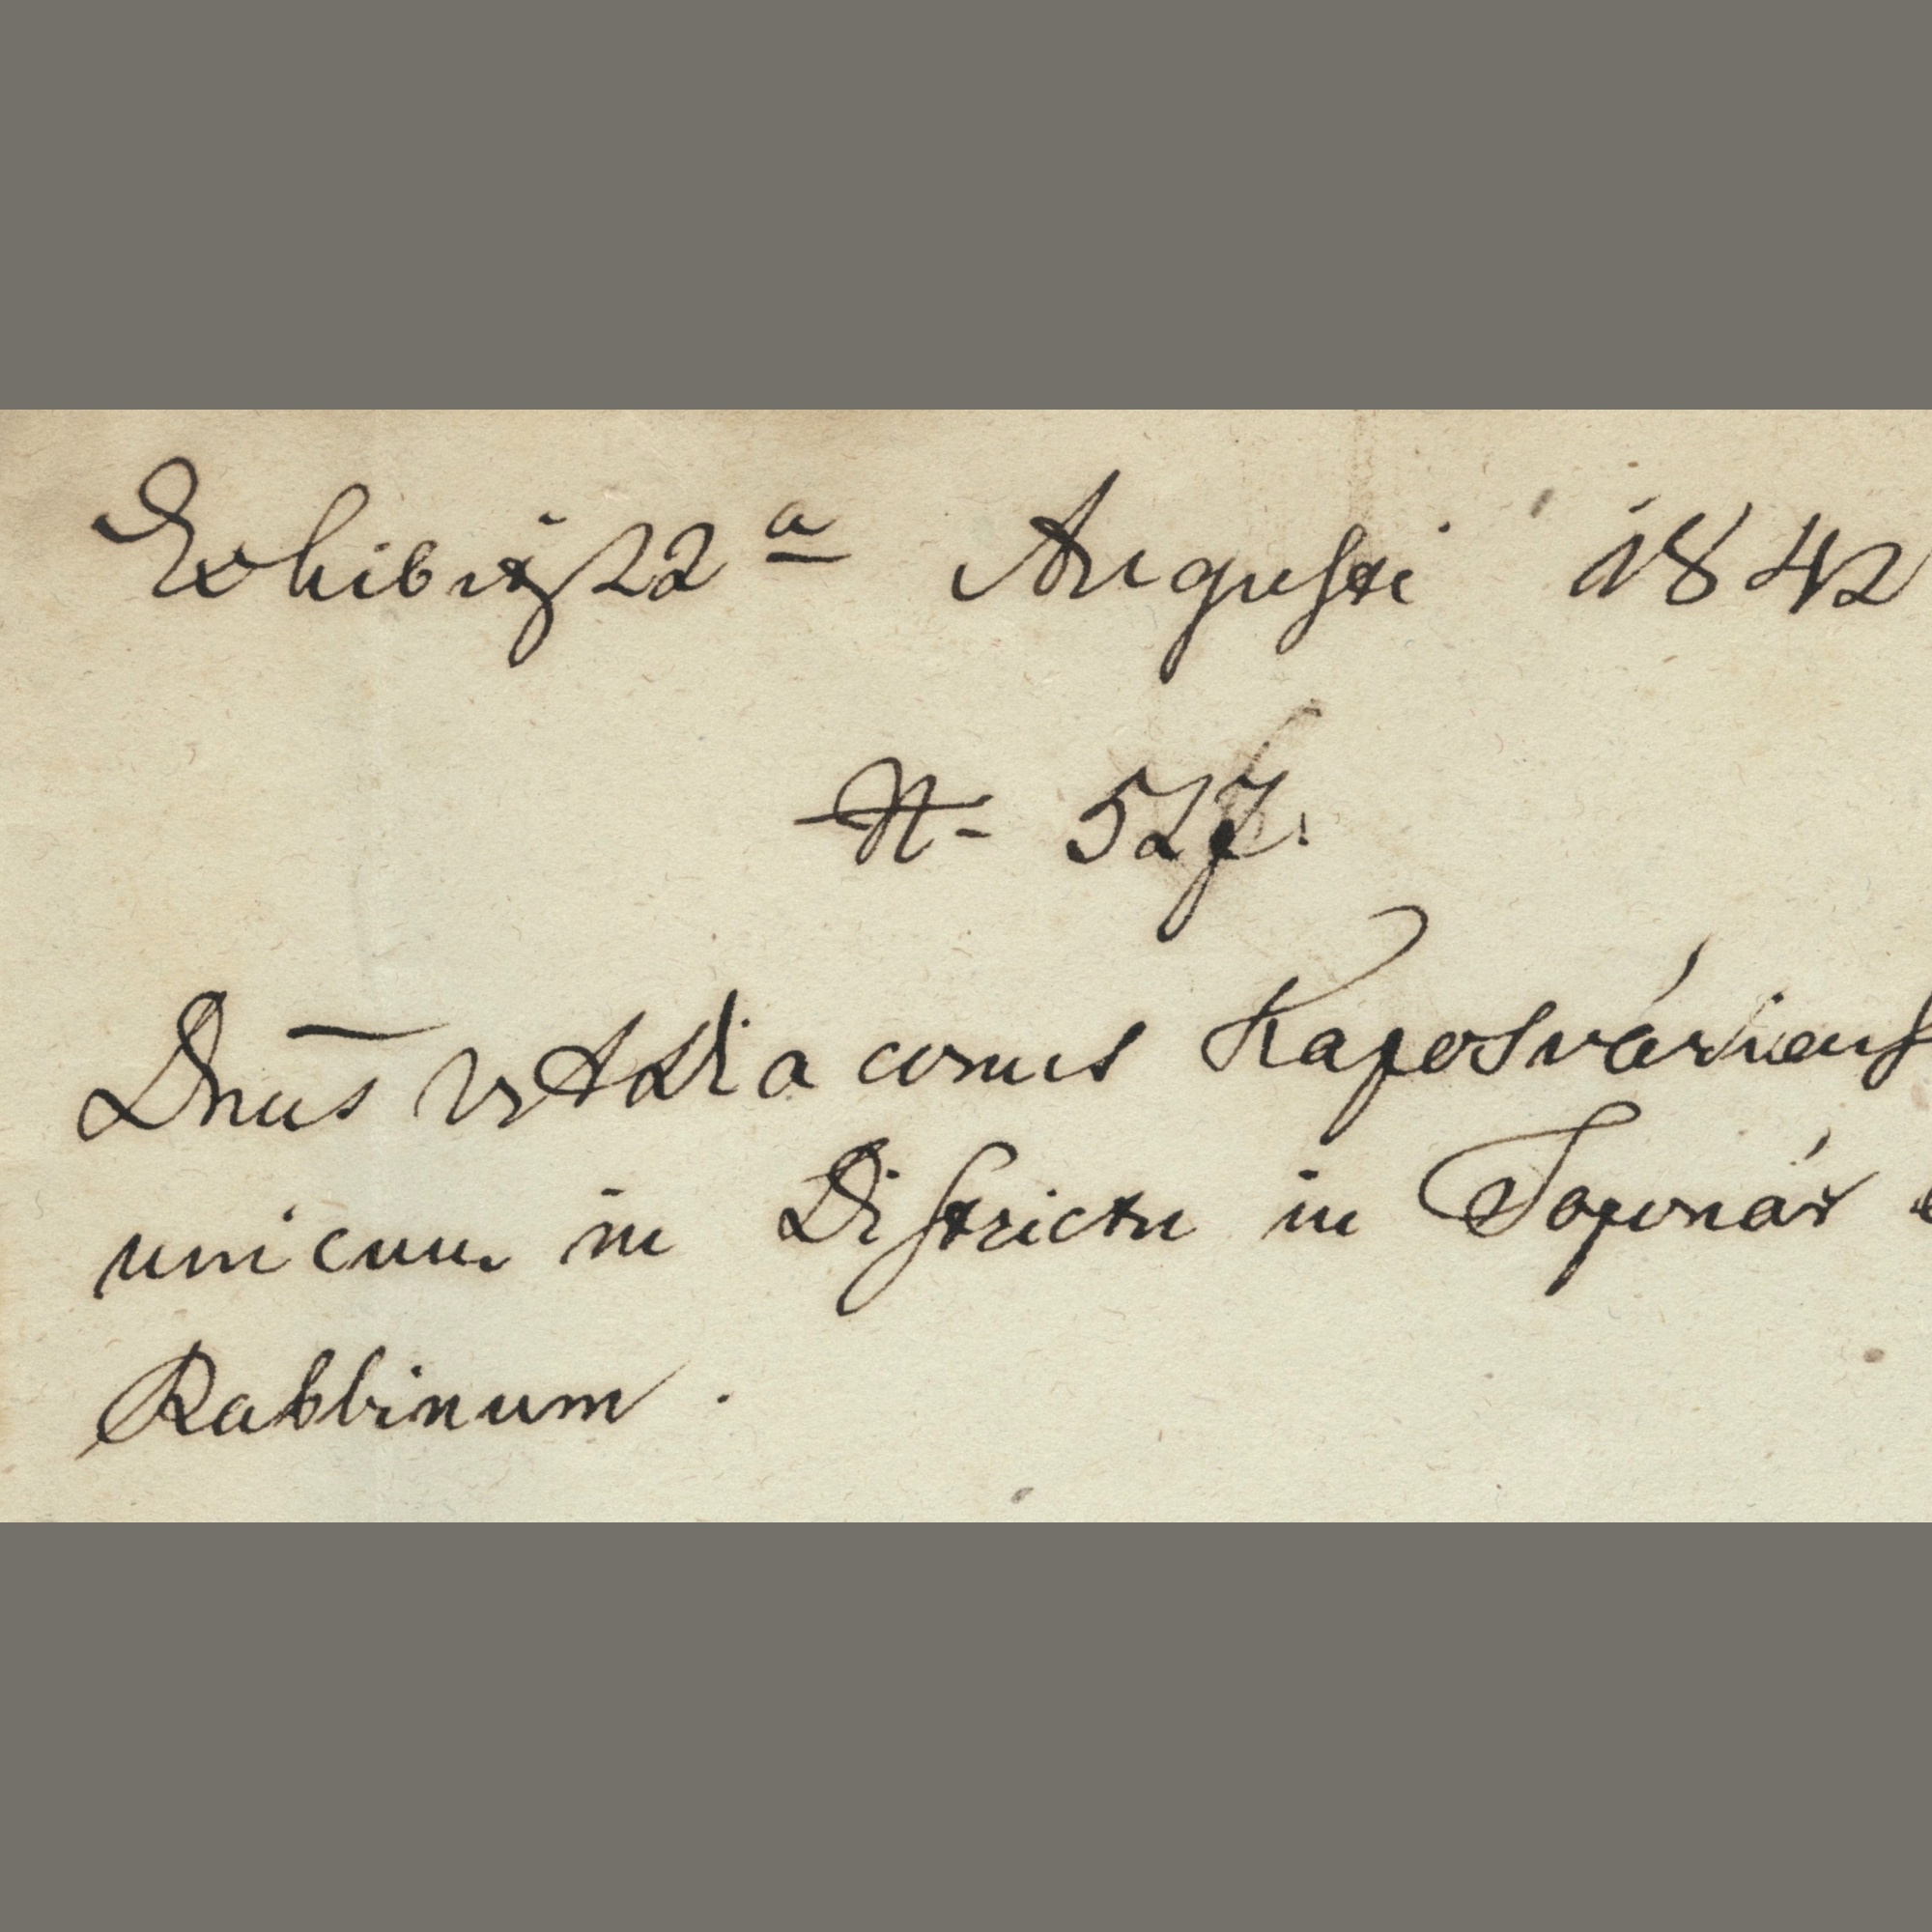 Exhibitj 22a Augusti 1842
N- 527.
Dnūs VADiaconus Kaposváriens
unicum in Districtu in Toponár
Rabbinum.